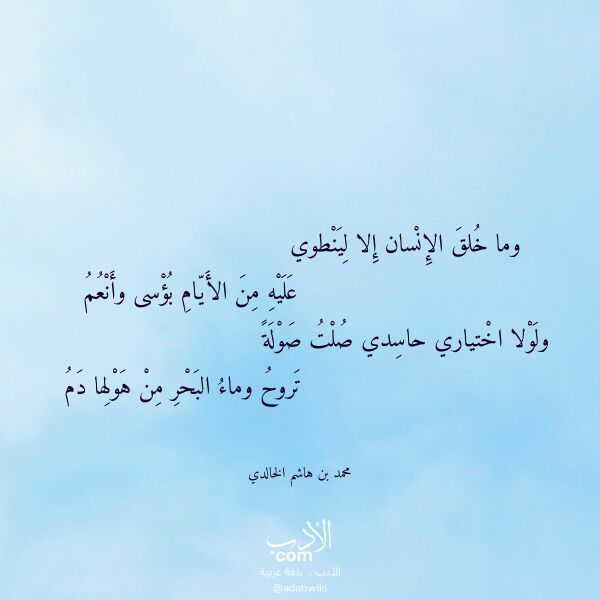 وما خُلقَ الإِنْسان إِلا لِيَنْطوي
عَلَيْهِ مِنَ الأَيّامِ بُؤْسى وأَنْعُمُ
ولَوْلا اخْتياري حاسِدي صُلْتُ صَوْلَةً
تَروحُ وماءُ البَحْرِ مِنْ هَوْلِها دَمُ
محمد بن هاشم الخالدي
الأدب
com
الأدب .. بلغة عربية
@adabwiki